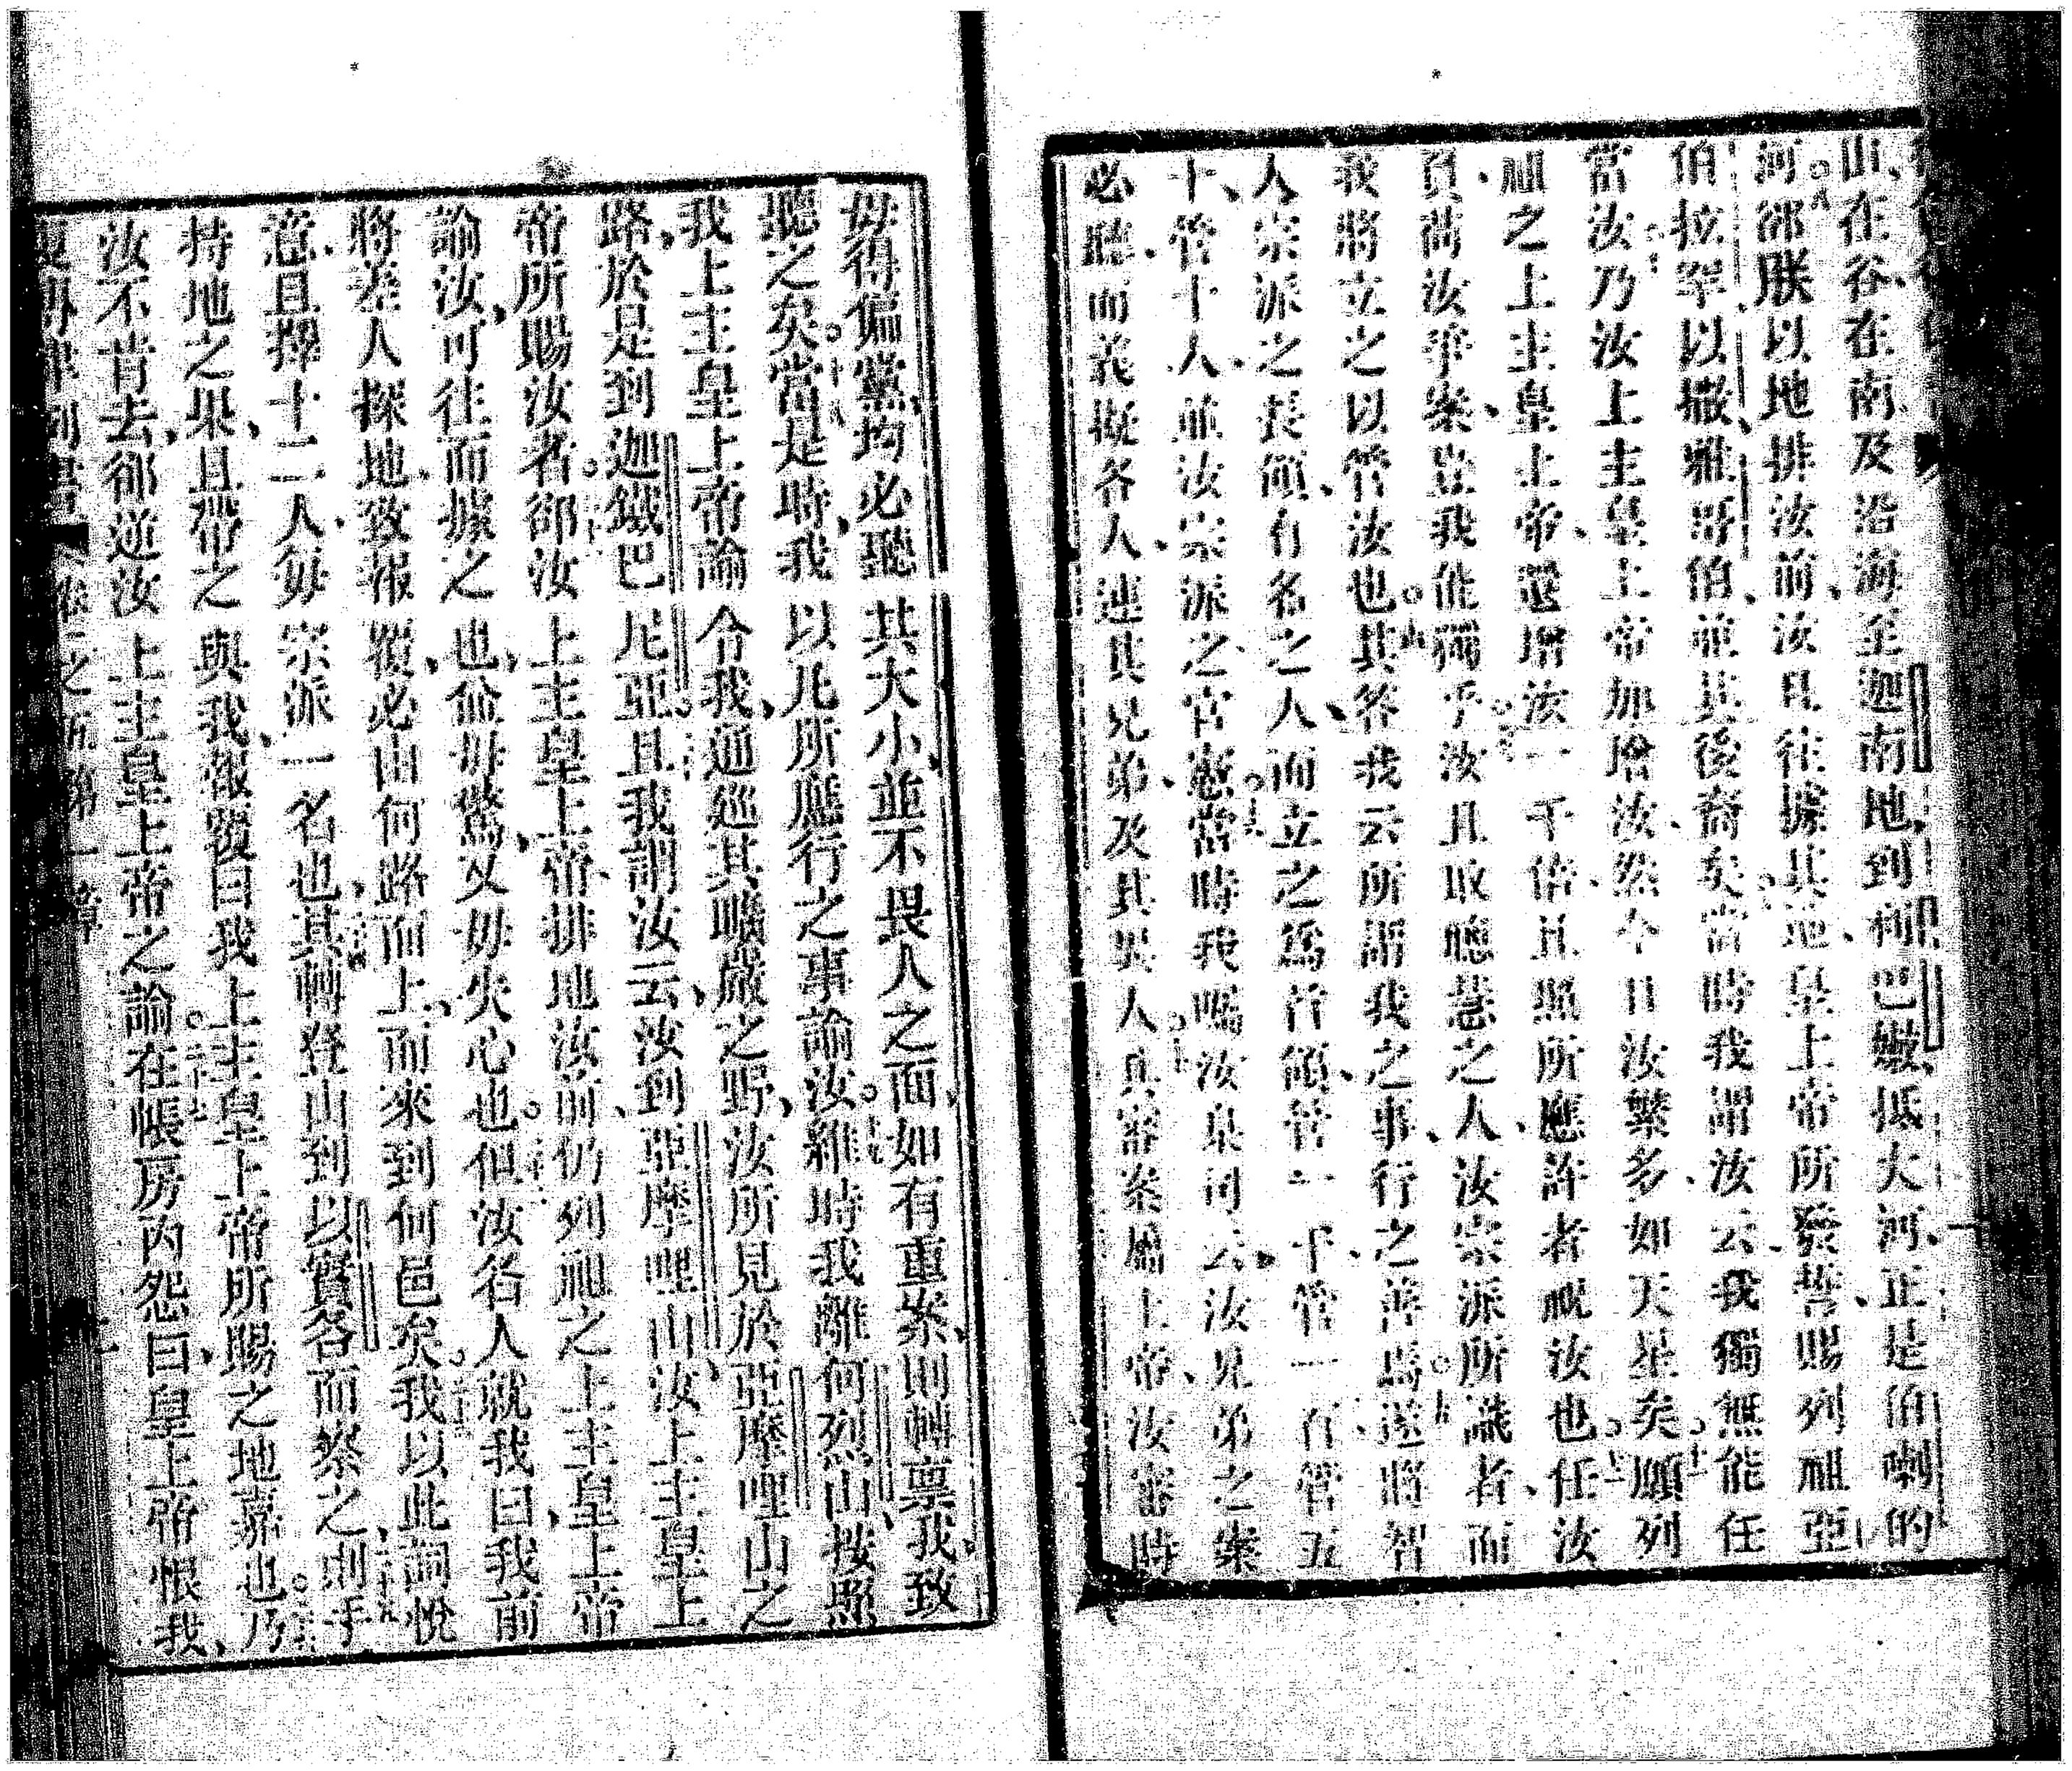 山、在谷、在南、及沿海至迦南地、到利巴嫩、抵大河、正是伯喇的
河。八郤朕以地排汝前、汝且往據其地、皇上帝所發誓、賜列祖亞
伯拉罕、以撒、雅哥伯、並其後裔矣。當時我謂汝云、我獨無能任
當汝、乃汝上主皇上帝加增汝、然今日汝繁多、如天星矣。十一願列
祖之上主皇上帝、還增汝一千倍、且照所應許者祝汝也。十二任汝
負荷汝爭案、豈我能獨乎。汝且取聰慧之人、汝宗派所識者、而
我將立之以管汝也。十四其答我云、所謂我之事、行之善焉。十五遂將智
人、宗派之長領、有名之人、而立之為首領、管一千、管一百、管五
十、管十人、並汝宗派之官憲。十六當時我囑汝臬司云、汝兄弟之案
必聽、而義擬各人、連其兄弟、及其異人。十七且審案屬上帝、汝審時
毋得偏黨、均必聽其大小、並不畏人之面、如有重案、則轉稟我、致
聽之矣。十八當是時、我以凡所應行之事諭汝。十九維時我離何烈山、按照
我上主皇上帝諭令我、通巡其曠嚴之野、汝所見於亞摩哩山之
路、於是到迦鐵巴尼亞。二十且我謂汝云、汝到亞摩哩山、汝上主皇上
帝所賜汝者。二十一郤汝上主皇上帝、排地汝前、仍列祖之上主皇上帝
諭汝、可往而據之也、儉毋驚、又毋失心也。二十二但汝各人就我曰、我前
將差人探地、致報覆、必由何路而上、而來到何邑矣。二十三我以此詞悅
意、且擇十二人、每宗派一名也。二十四其轉登山、到以實各而察之。二十五則手
持地之果、且帶之與我、報覆曰、我上主皇上帝所賜之地嘉也。二十六乃
汝不肯去、郤逆汝上主皇上帝之諭。二十七在帳房內怨曰、皇上帝恨我、
復傳律例書 第一章